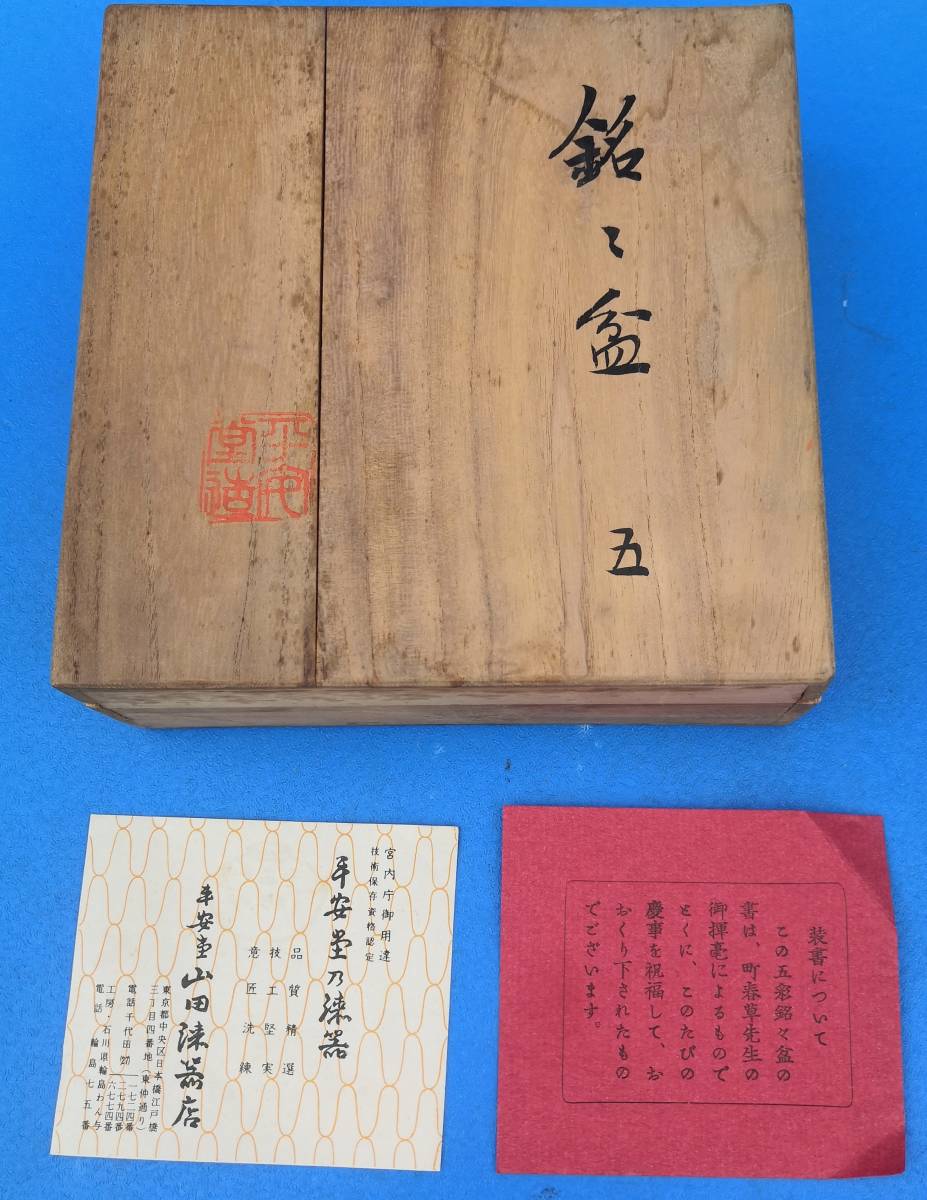 銘〻盆 五
平安
堂造
宮内庁御用達
技術保存資格認定
平安堂乃漆器
品質精選
技工堅実
意匠洗練
平安堂 山田漆器店
東京都中央区日本橋江戸橋
三丁目四番地(東仲通り)
電話千代田(27)一七二四番
二七九四番
六七七四番
工房・石川県輪島わん与
電話 輪島七五番
装書について
この五彩銘々盆の
書は、町春草先生の
御揮毫によるもので
とくに、このたびの
慶事を祝福して、お
おくり下されたもの
でございます。